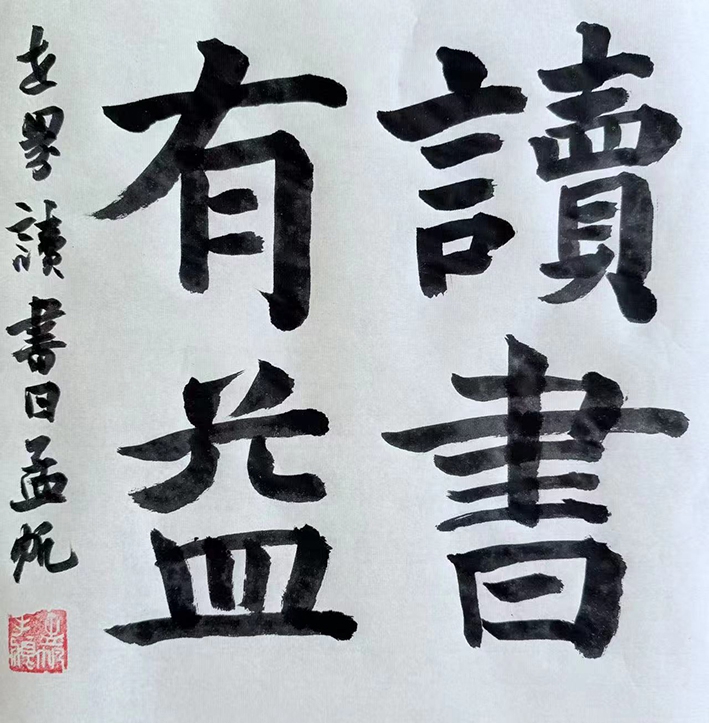 讀書
有益
世界讀書日孟帆